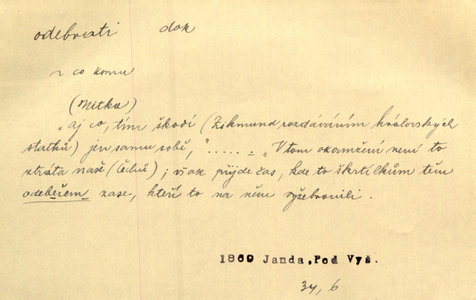 odebrati dok
~ co komu
(Mitka)
„Aj co, tím škodí (Zikmund rozdáváním královských
statků) jen samu sobě, "..... „V tom okamžení není to
ztráta naše (Čechů); však přijde čas, kde to škrtilkům těm
odebeřem zase, kteří to na něm vyžebronili.
1869 Janda, Pod Vyš.
34, 6